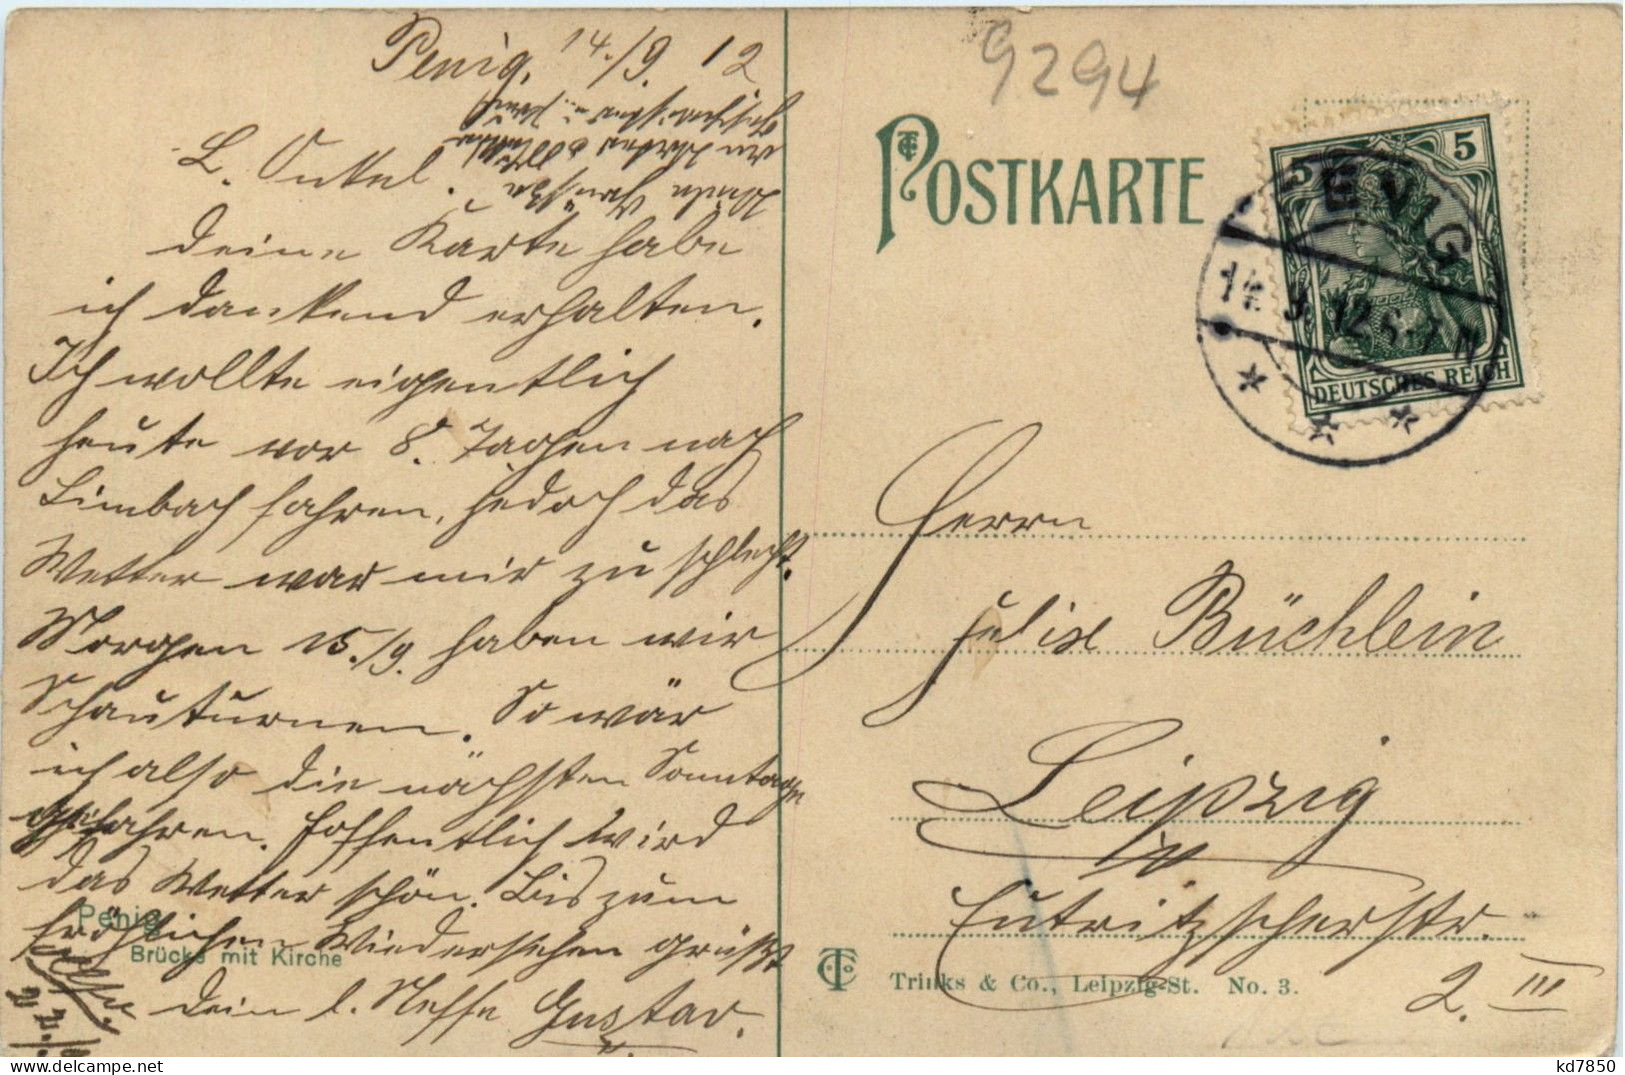 Penig, 14./9. 12
L. Onkel.
Deine Karte habe
ich dankend erhalten.
Ich wollte eigentlich
heute vor 8. Tagen nach
Limbach fahren, jedoch das
Wetter war mir zu schlecht.
Morgen 15./9. haben wir
Schauturnen. So wär
ich also die nächsten Sonntage
gefahren. Hoffentlich wird
das Wetter schön. Bis zum
fröhlichen Wiedersehen grüßt
Dein l. Neffe Gustav.
Viele Grüße
von Mutter
Geschwister
Penig
Brücke mit Kirche
9294
POSTKARTE
5 5
DEUTSCHES REICH
PENIG
14. 9. 12. 6-7 N
Herrn
Felix Büchlein
Leipzig
Eutritzscherstr.
2. III
TC Co
Trinks & Co., Leipzig-St. No. 3.
kd7850